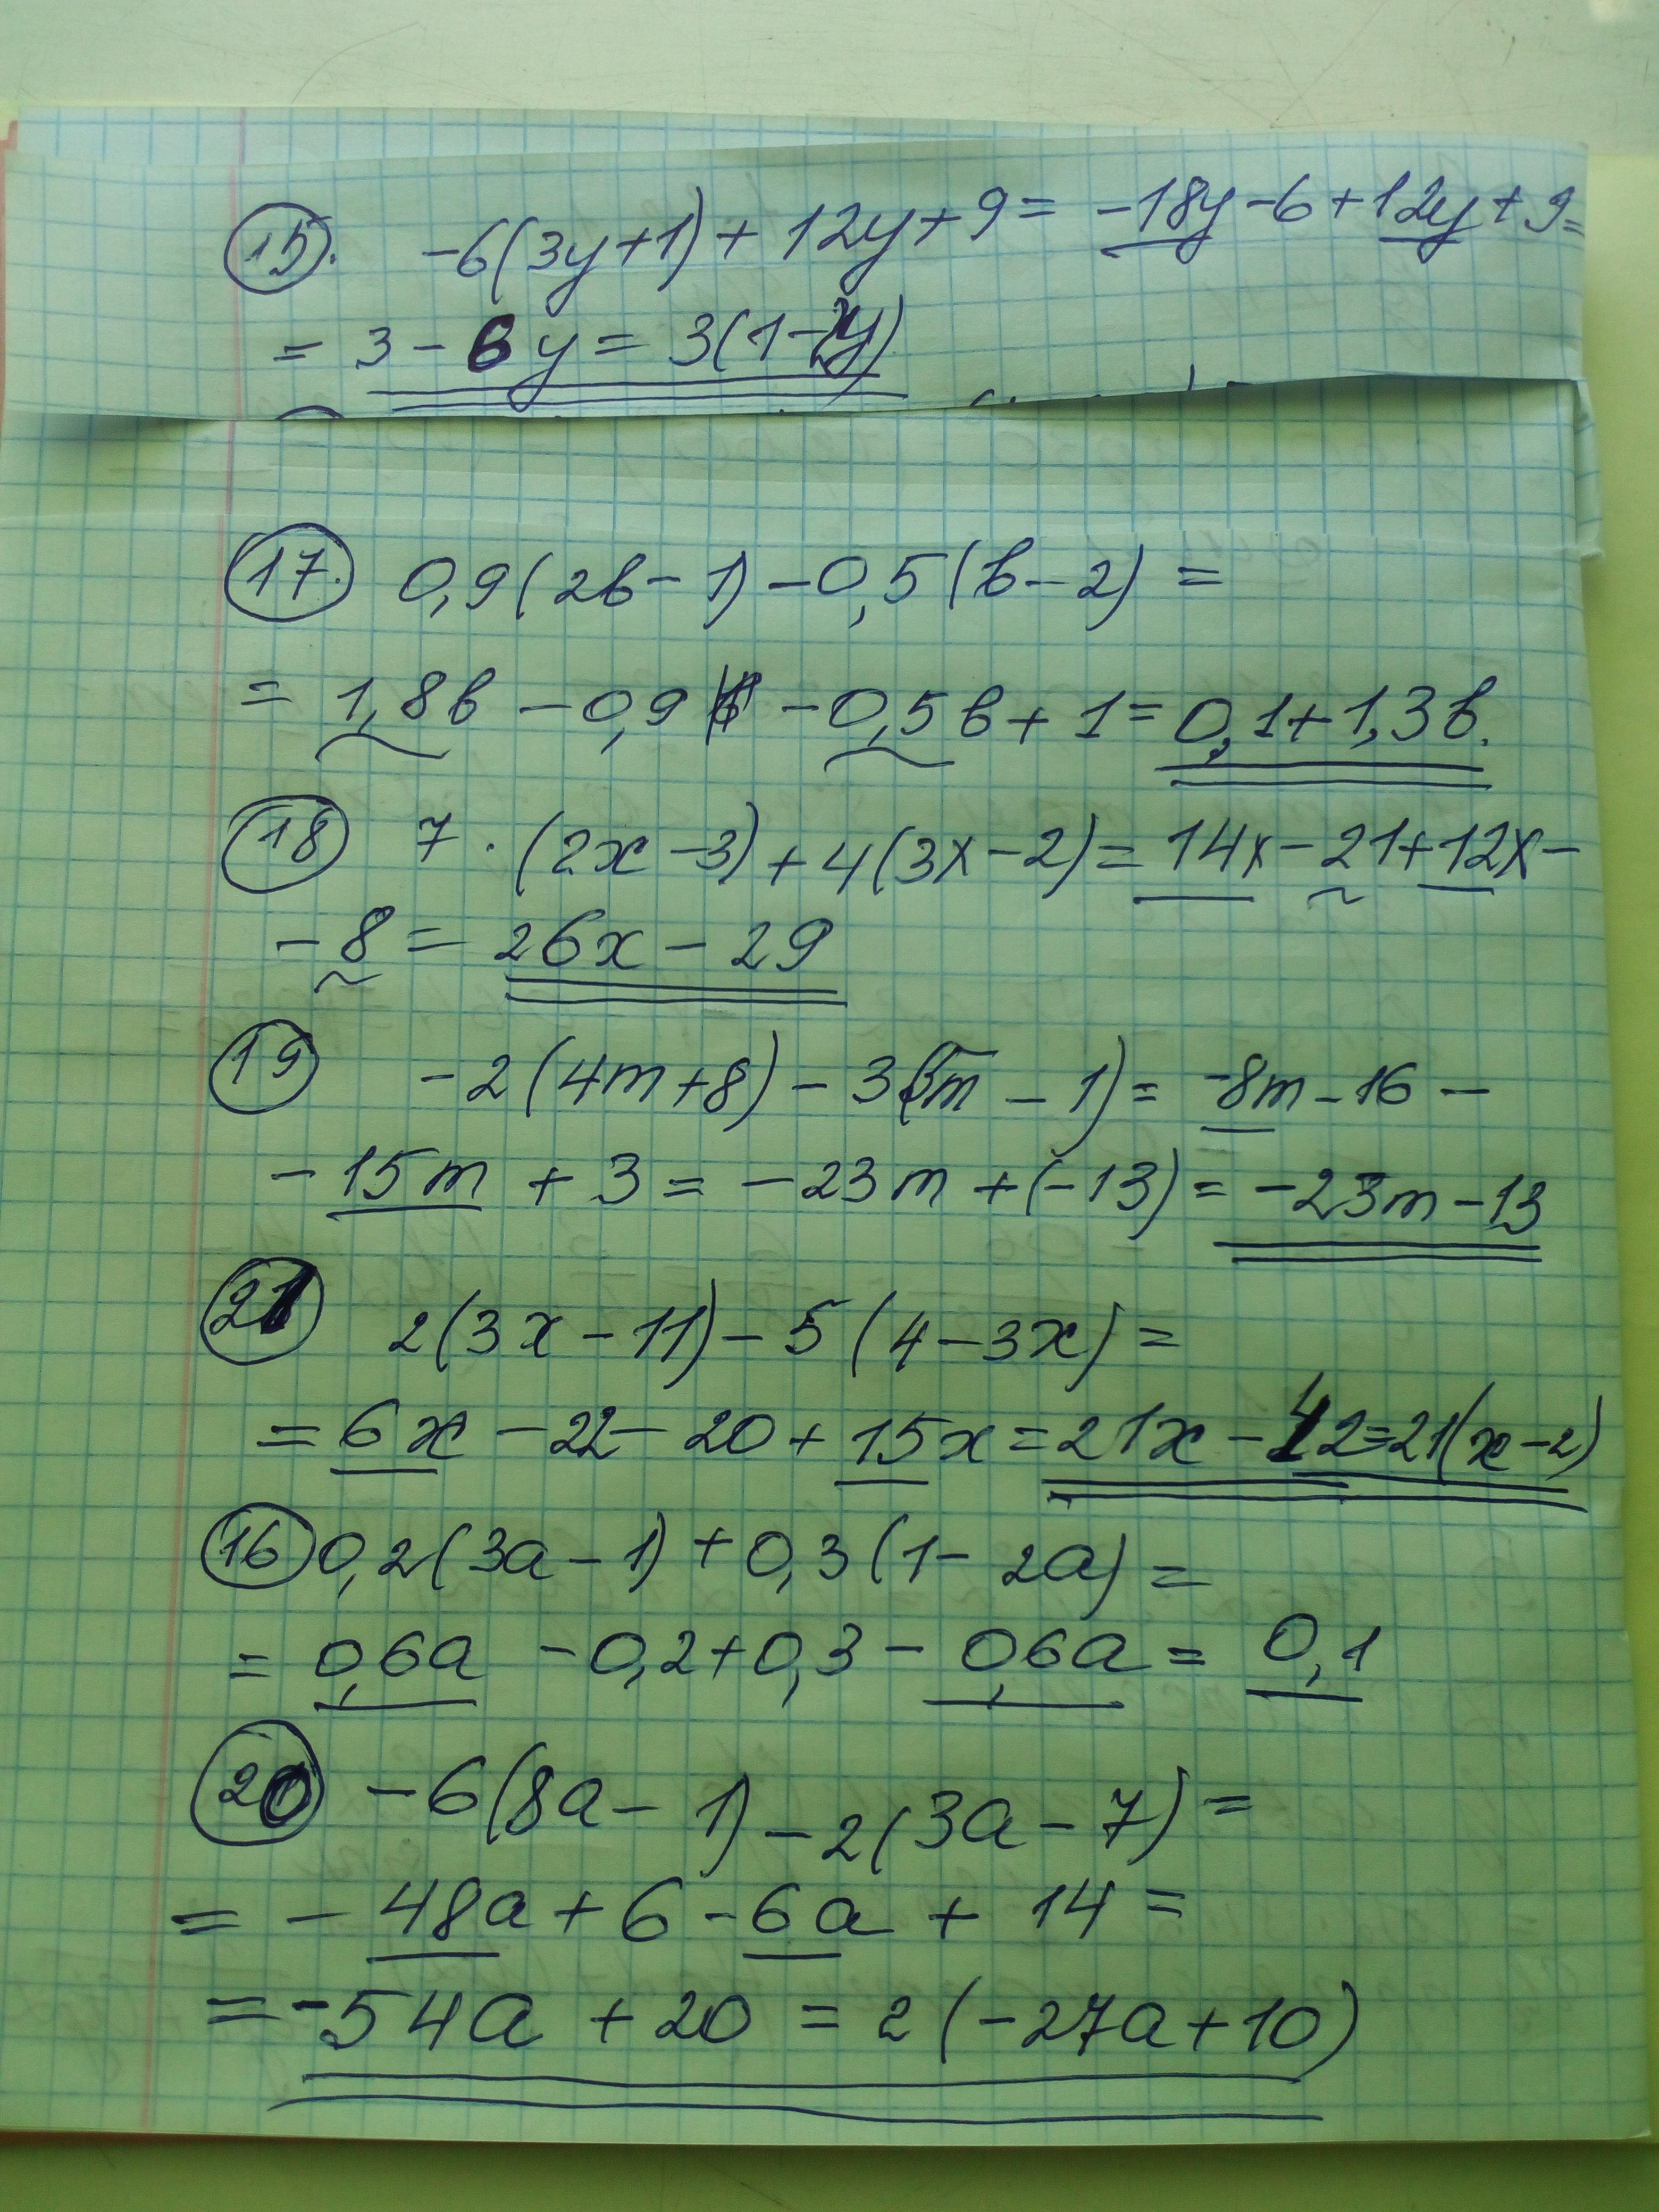 15. -6(3y+1)+12y+9= -18y-6+12y+9=
= 3-6y= 3(1-2y)
17. 0,9(2b-1)-0,5(b-2)=
= 1,8b-0,9-0,5b+1=0,1+1,3b.
18 7·(2x-3)+4(3x-2)=14x-21+12x-
-8=26x-29
19 -2(4m+8)-3(5m-1)=-8m-16-
-15m+3=-23m+(-13)=-23m-13
21 2(3x-11)-5(4-3x)=
=6x-22-20+15x=21x-42=21(x-2)
16 0,2(3a-1)+0,3(1-2a)=
=0,6a-0,2+0,3-0,6a=0,1
20 -6(8a-1)-2(3a-7)=
=-48a+6-6a+14=
=-54a+20=2(-27a+10)